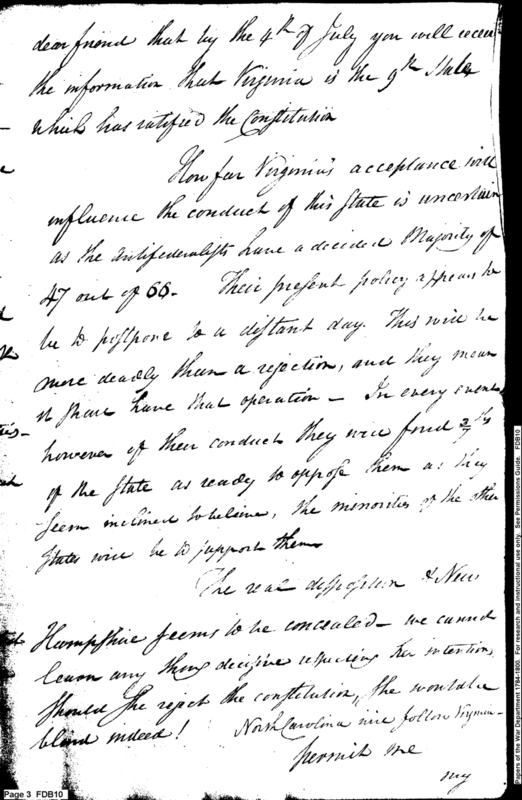 dear friend that by the 4th of July you will receive
the information that Virginia is the 9th State
which has ratified the Constitution
How far Virginia's acceptance will
influence the conduct of this State is uncertain
as the antifederalists have a decided Majority of
47 out of 66. Their present policy appears to
be to postpone to a distant day. This will be
more deadly than a rejection, and they mean
it shall have that operation — In every event
however of their conduct they will find 2/7ths
of the State as ready to oppose them as they
seem inclined to believe, the minorities of the other
States will be to support them
The real disposition of New
Hampshire seems to be concealed — we cannot
learn any thing decisive respecting her intention,
should she reject the constitution, she would be
blind indeed! North Carolina will follow Virginia —
permit me
my
Page 3 FDB10
Papers of the War Department 1784-1800. For research and instructional use only. See Permissions Guide. FDB10